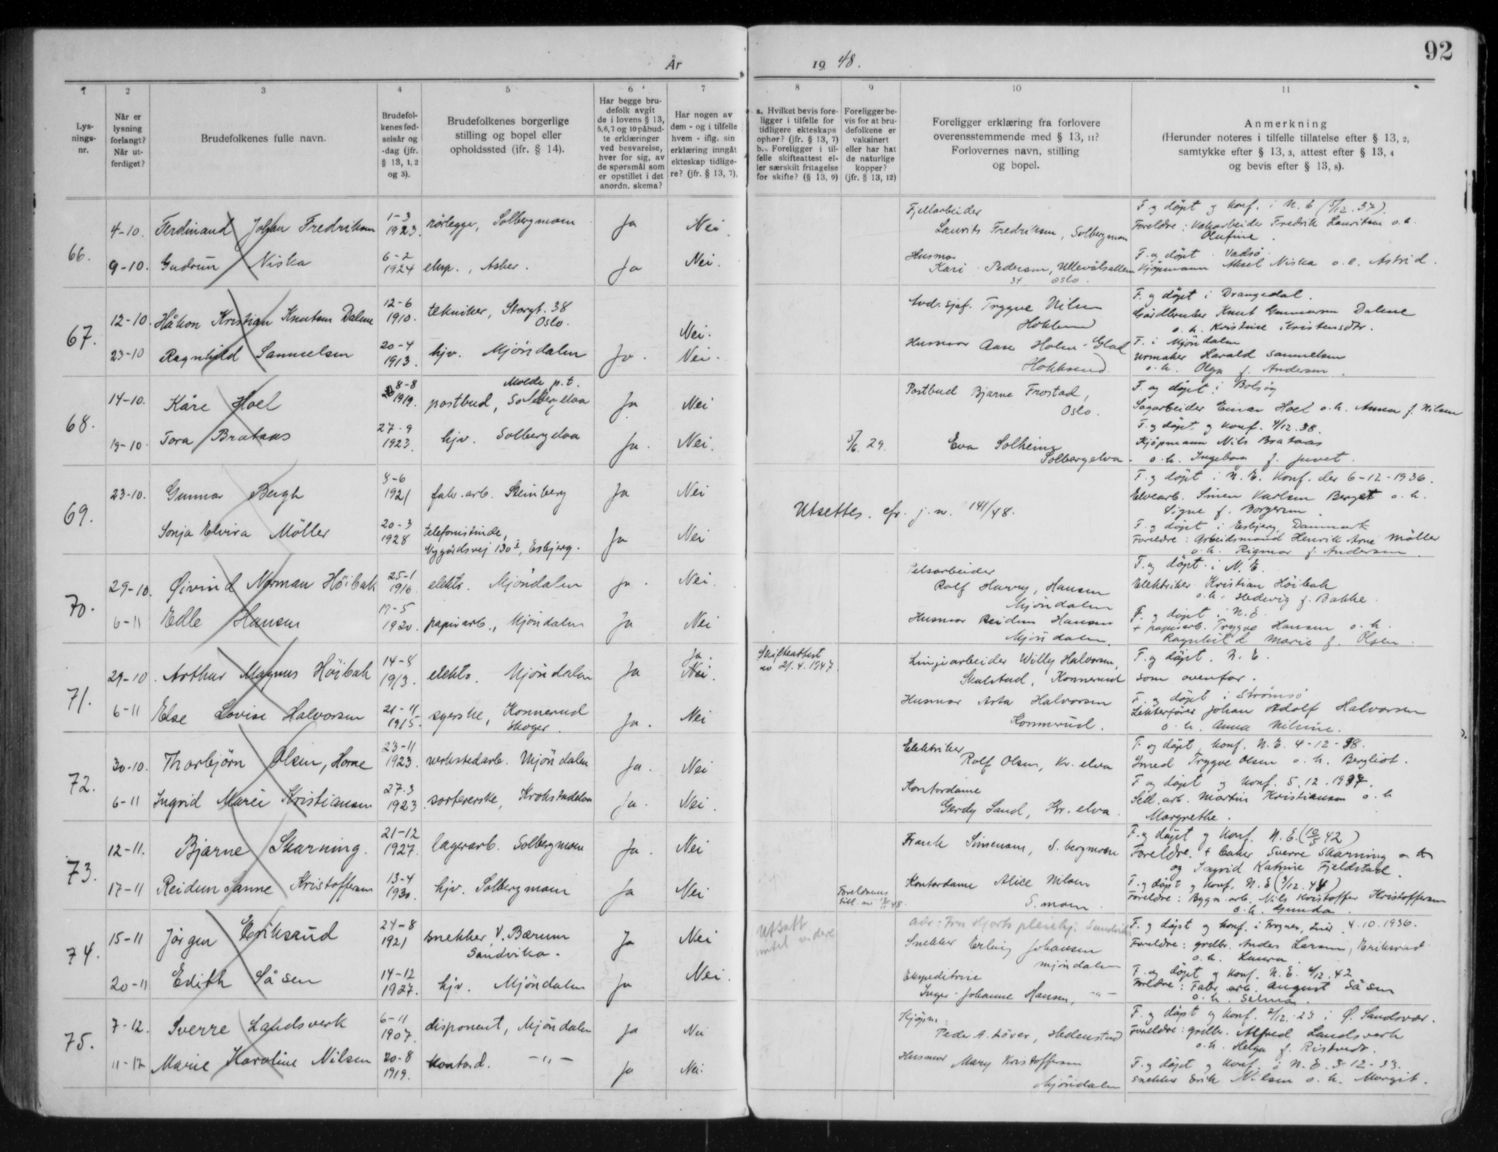 92
År 1948.
1 2 3 4 5 6 7 8 9 10 11
Lysningsnr.
Når er lysning forlangt? Når utferdiget?
Brudefolkenes fulle navn.
Brudefolkenes fødselsår og -dag (jfr. § 13, 1, 2 og 3).
Brudefolkenes borgerlige stilling og bopel eller opholdssted (jfr. § 14).
Har begge brudefolk avgitt de i lovens § 13, 5,6,7 og 10 påbudte erklæringer ved besvarelse, hver for sig, av de spørsmål som er opstillet i det anordn. skema?
Har nogen av dem - og i tilfelle hvem - iflg. sin erklæring inngått ekteskap tidligere? (jfr. § 13, 7).
a. Hvilket bevis foreligger i tilfelle for tidligere ekteskaps ophør? (jfr. § 13, 7) b. Foreligger i tilfelle skifteattest eller særskilt fritagelse for skifte? (§ 13, 9)
Foreligger bevis for at brudefolkene er vaksinert eller har hatt de naturlige kopper? (jfr. § 13, 12)
Foreligger erklæring fra forlovere overensstemmende med § 13, 11? Forlovernes navn, stilling og bopel.
Anmerkning (Herunder noteres i tilfelle tillatelse efter § 13, 2, samtykke efter § 13, 3, attest efter § 13, 4 og bevis efter § 13, 8).
66.
4-10. Ferdinand Johan Fredriksen 1-3 1923. rørlegger, Solbergmoen Ja Nei.
Fjellarbeider Laurits Fredriksen, Solbergmoen
F. og døpt og konf. i N. E.
Foreldre: Fredrik Lauritsen o.h. Olufine.
9-10. Gudrun Niska 6-2 1924 eksp., Asker. Ja Nei.
Husmor Kari Pedersen, Ullevålsalleen Oslo
F. og døpt Vadsø.
Kjøpmann Aksel Niska o.h. Astrid.
67.
12-10. Håkon Kristian Knutsen Dalene 12-6 1910. tekniker, Storgt. 38 Oslo. Nei.
Trygve Nilsen Hokksund
F. og døpt i Drangedal.
Gårdbruker Knut Gunnarsen Dalene o.h. Kristine Kristensdtr.
23-10 Ragnhild Samuelsen 20-4 1913. hjv. Mjøndalen Ja. Nei.
Husmor Aase Holm-Glad Hokksund
F. i Mjøndalen
Urmaker Harald Samuelsen o.h. Olga f. Andersen.
68.
14-10. Kåre Hoel 8-8 1919. postbud, Molde p.t. Solbergelva Ja Nei
Postbud Bjarne Frostad, Oslo.
F. og døpt i Bolsøy
Sagarbeider Einar Hoel o.h. Anna f. Nilsen
19-10. Tora Brataas 27-9 1923. hjv. Solbergelva Ja. Nei.
Eva Solheim Solbergelva.
F. og døpt og konf.
Kjøpmann Nils Brataas o.h. Ingeborg f. Juvet.
69.
23-10. Gunnar Bergh 8-6 1921 fabr.arb. Steinberg Ja Nei
Utsettes. cfr. j.nr. 141/48.
F. og døpt i N. E. Konf. der 6-12-1936.
Signe f. Borgersen.
Sonja Elvira Møller 20-3 1928 telefonistinde, Esbjerg. Ja Nei
F. og døpt i Esbjerg, Danmark
Foreldre: Arbeidsmand Henrik Arne Møller o.h. Rigmor f. Andersen.
70.
29-10. Øivind Norman Høibak 25-1 1916. elektr. Mjøndalen Ja. Nei.
Rolf Harry Hansen Mjøndalen
F. og døpt i N. E.
Elektriker Kristian Høibak o.h. Hedevig f. Bakke.
6-11 Edle Hansen 17-5 1920. papirarb., Mjøndalen Ja Nei
Husmor Reidun Hansen Mjøndalen.
F. og døpt i N. E.
+ papirarb. Trygve Hansen o.h. Ragnhild Marie f. Olsen.
71.
29-10. Arthur Magnus Høibak 14-8 1913. elektr. Mjøndalen Ja Ja Nei.
Skifteattest av 21.4.1947.
Linjearbeider Willy Halvorsen, Skalstad, Konnerud
F. og døpt. N. E.
som ovenfor.
6-11 Else Lovise Halvorsen 1915. syerske, Konnerud Skoger. Ja. Nei
Husmor Asta Halvorsen Konnerud.
F. og døpt i Strømsø
Johan Adolf Halvorsen o.h. Anna Nilsine.
72.
30-10. Thorbjørn Olsen, Horne 23-11 1923. verkstedarb. Mjøndalen Ja. Nei
Elektriker Rolf Olsen, Kr. elva
F. og døpt konf. N. E. 4-12-38.
Smed Trygve Olsen o.h. Bergliot.
6-11 Ingrid Marie Kristiansen 27-3 1923 sortererske, Krokstadelva Ja. Nei.
Kontordame Gerdy Sand, Kr. elva
F. og døpt og konf. 5.12.1937.
Martin Kristiansen o.h. Margrethe.
73.
12-11. Bjarne Skarning. 21-12 1927. lagerarb. Solbergmoen Ja. Nei
Frank Simensen, S. bergmoen
F. og døpt og konf. N. E.
Foreldre: + Baker Sverre Skarning og Ingrid Katrine Fjeldstad.
17-11 Reidun Sanne Kristoffersen 13-4 1930. hjv. Solbergmoen Ja Nei
Foreldrenes till. av
Kontordame Alice Nilsen S. moen.
F. og døpt og konf. N. E.
Foreldre: Bygn. arb. Nils Kristoffer Kristoffersen o.h. Gunda.
74.
15-11 Jørgen Eriksrud 24-8 1921 snekker V. Bærum Sandvika. Ja Nei
Utsatt inntil videre
Snekker Erling Johansen Mjøndalen
F. og døpt og konf. i Frogner, Lier. 4.10.1936.
Foreldre: grdbr. Anders Larsen Eriksrud o.h. Laura.
20-11 Edith Såsen 14-12 1927. hjv. Mjøndalen Ja Nei.
Ekspeditrise Inger-Johanne Hansen, -"-
F. og døpt og konf. N. E. 6/12.42
Foreldre: Fabr. arb. August Såsen o.h. Selma.
75.
7-12. Sverre Landsverk 6-11 1907. disponent, Mjøndalen Ja Nei
Kjøpm. Peder A. Løver, Hedenstad
F. og døpt og konf. i Ø. Sandsvær.
Foreldre: grdbr. Alfred Landsverk o.h. Helga f. Ristvedt.
11-12 Marie Karoline Nilsen 20-8 1919. kontord. -"- Ja Nei.
Husmor Mary Kristoffersen Mjøndalen
F. og døpt og konf. i N. E. 3-12-33.
Snekker Erik Nilsen o.h. Margit.